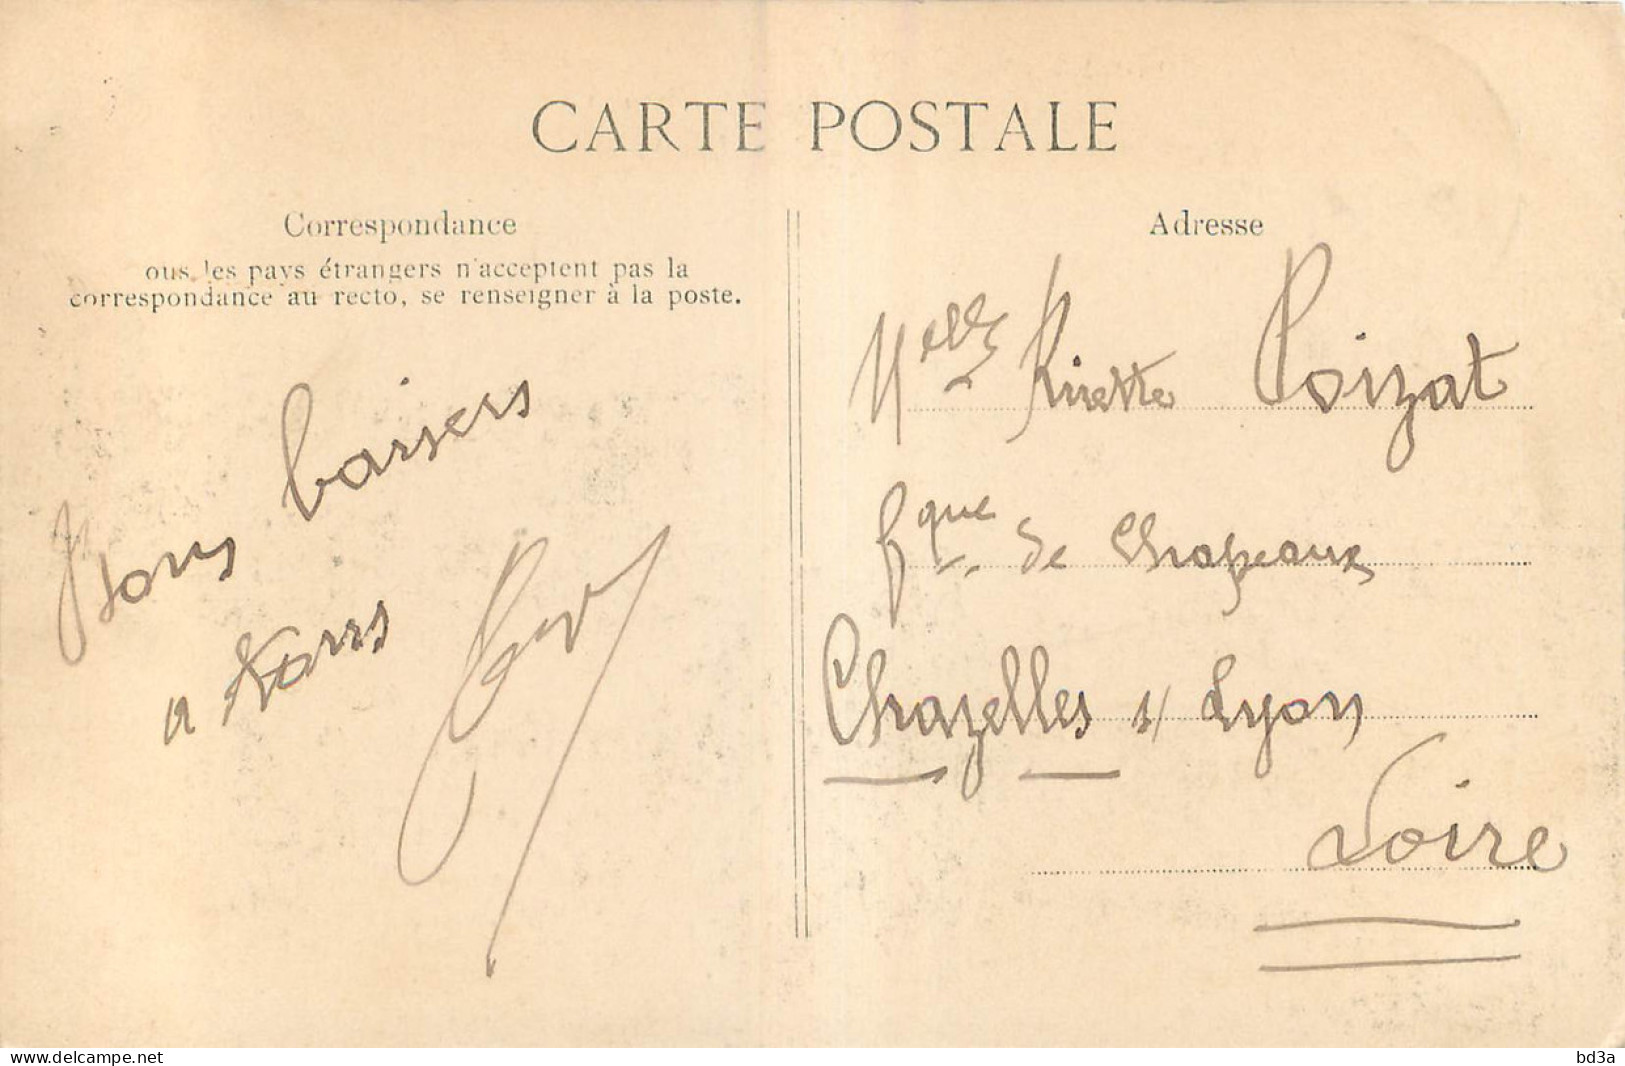 CARTE POSTALE
Correspondance
ous les pays étrangers n'acceptent pas la
correspondance au recto, se renseigner à la poste.
Bons baisers
a tous
Adresse
Melle Poizat
fque de Chapeaux
Chazelles s/ Lyon
Loire
www.delcampe.net
bd3a